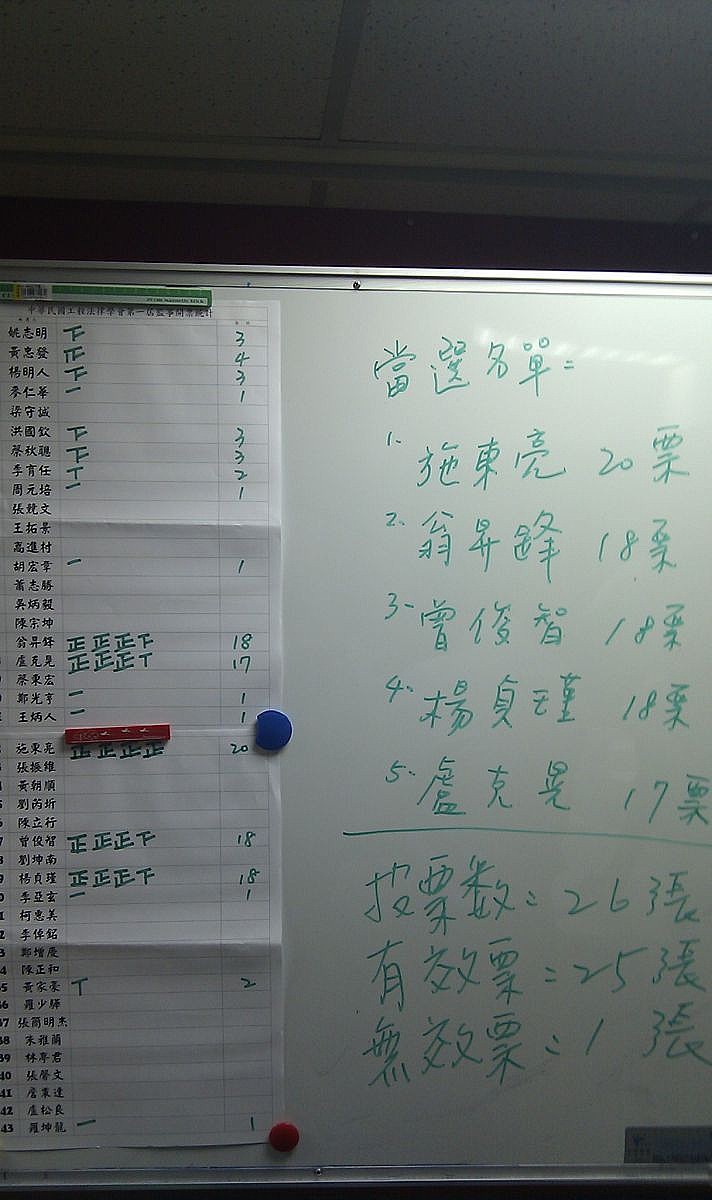 中華民國工程法律學會第一屆監事開票統計
姚志明 下 3
黃忠發 正 4
楊明人 下 3
麥仁華 一 1
梁守誠
洪國欽 下 3
蔡秋聰 下 3
李育任 丅 2
周元培 一 1
張兢文
王拓景
高進村
胡宏韋 一 1
蕭志勝
吳炳毅
陳宗坤
翁昇鋒 正正正下 18
盧克晃 正正正丅 17
蔡東宏
鄭光亨 一 1
王炳人 一 1
施東亮 正正正正 20
張振維
黃朝順
劉芮圻
陳立行
曾俊智 正正正下 18
劉坤南
楊貞瑾 正正正下 18
李亞玄 一 1
柯惠美
李偉銘
鄭增慶
陳正和
黃家豪 丅 2
羅少驊
37 張簡明杰
38 朱雅蘭
39 林亭君
40 張馨文
41 詹東達
42 盧松良
43 羅坤龍 一 1
當選名單=
1. 施東亮 20票
2. 翁昇鋒 18票
3. 曾俊智 18票
4. 楊貞瑾 18票
5. 盧克晃 17票
投票数=26張
有效票=25張
無效票=1張